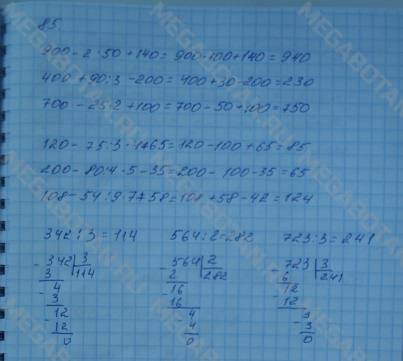 85.
900 - 2 · 50 + 140 = 900 - 100 + 140 = 940
400 + 90 : 3 - 200 = 400 + 30 - 200 = 230
700 - 25·2 + 100 = 700 - 50 + 100 = 750
120 - 75 : 3 · 4 + 65 = 120 - 100 + 65 = 85
200 - 80:4 · 5 - 35 = 200 - 100 - 35 = 65
108 - 54 : 9 · 7 + 58 = 108 + 58 - 42 = 124
342 : 3 = 114 564 : 2 = 282 723 : 3 = 241
- 342 | 3 - 564 | 2 - 723 | 3
3 114 2 282 6 241
- 4 - 16 - 12
3 16 12
12 4 - 3
12 4 3
0 0 0
MEGABOTAN